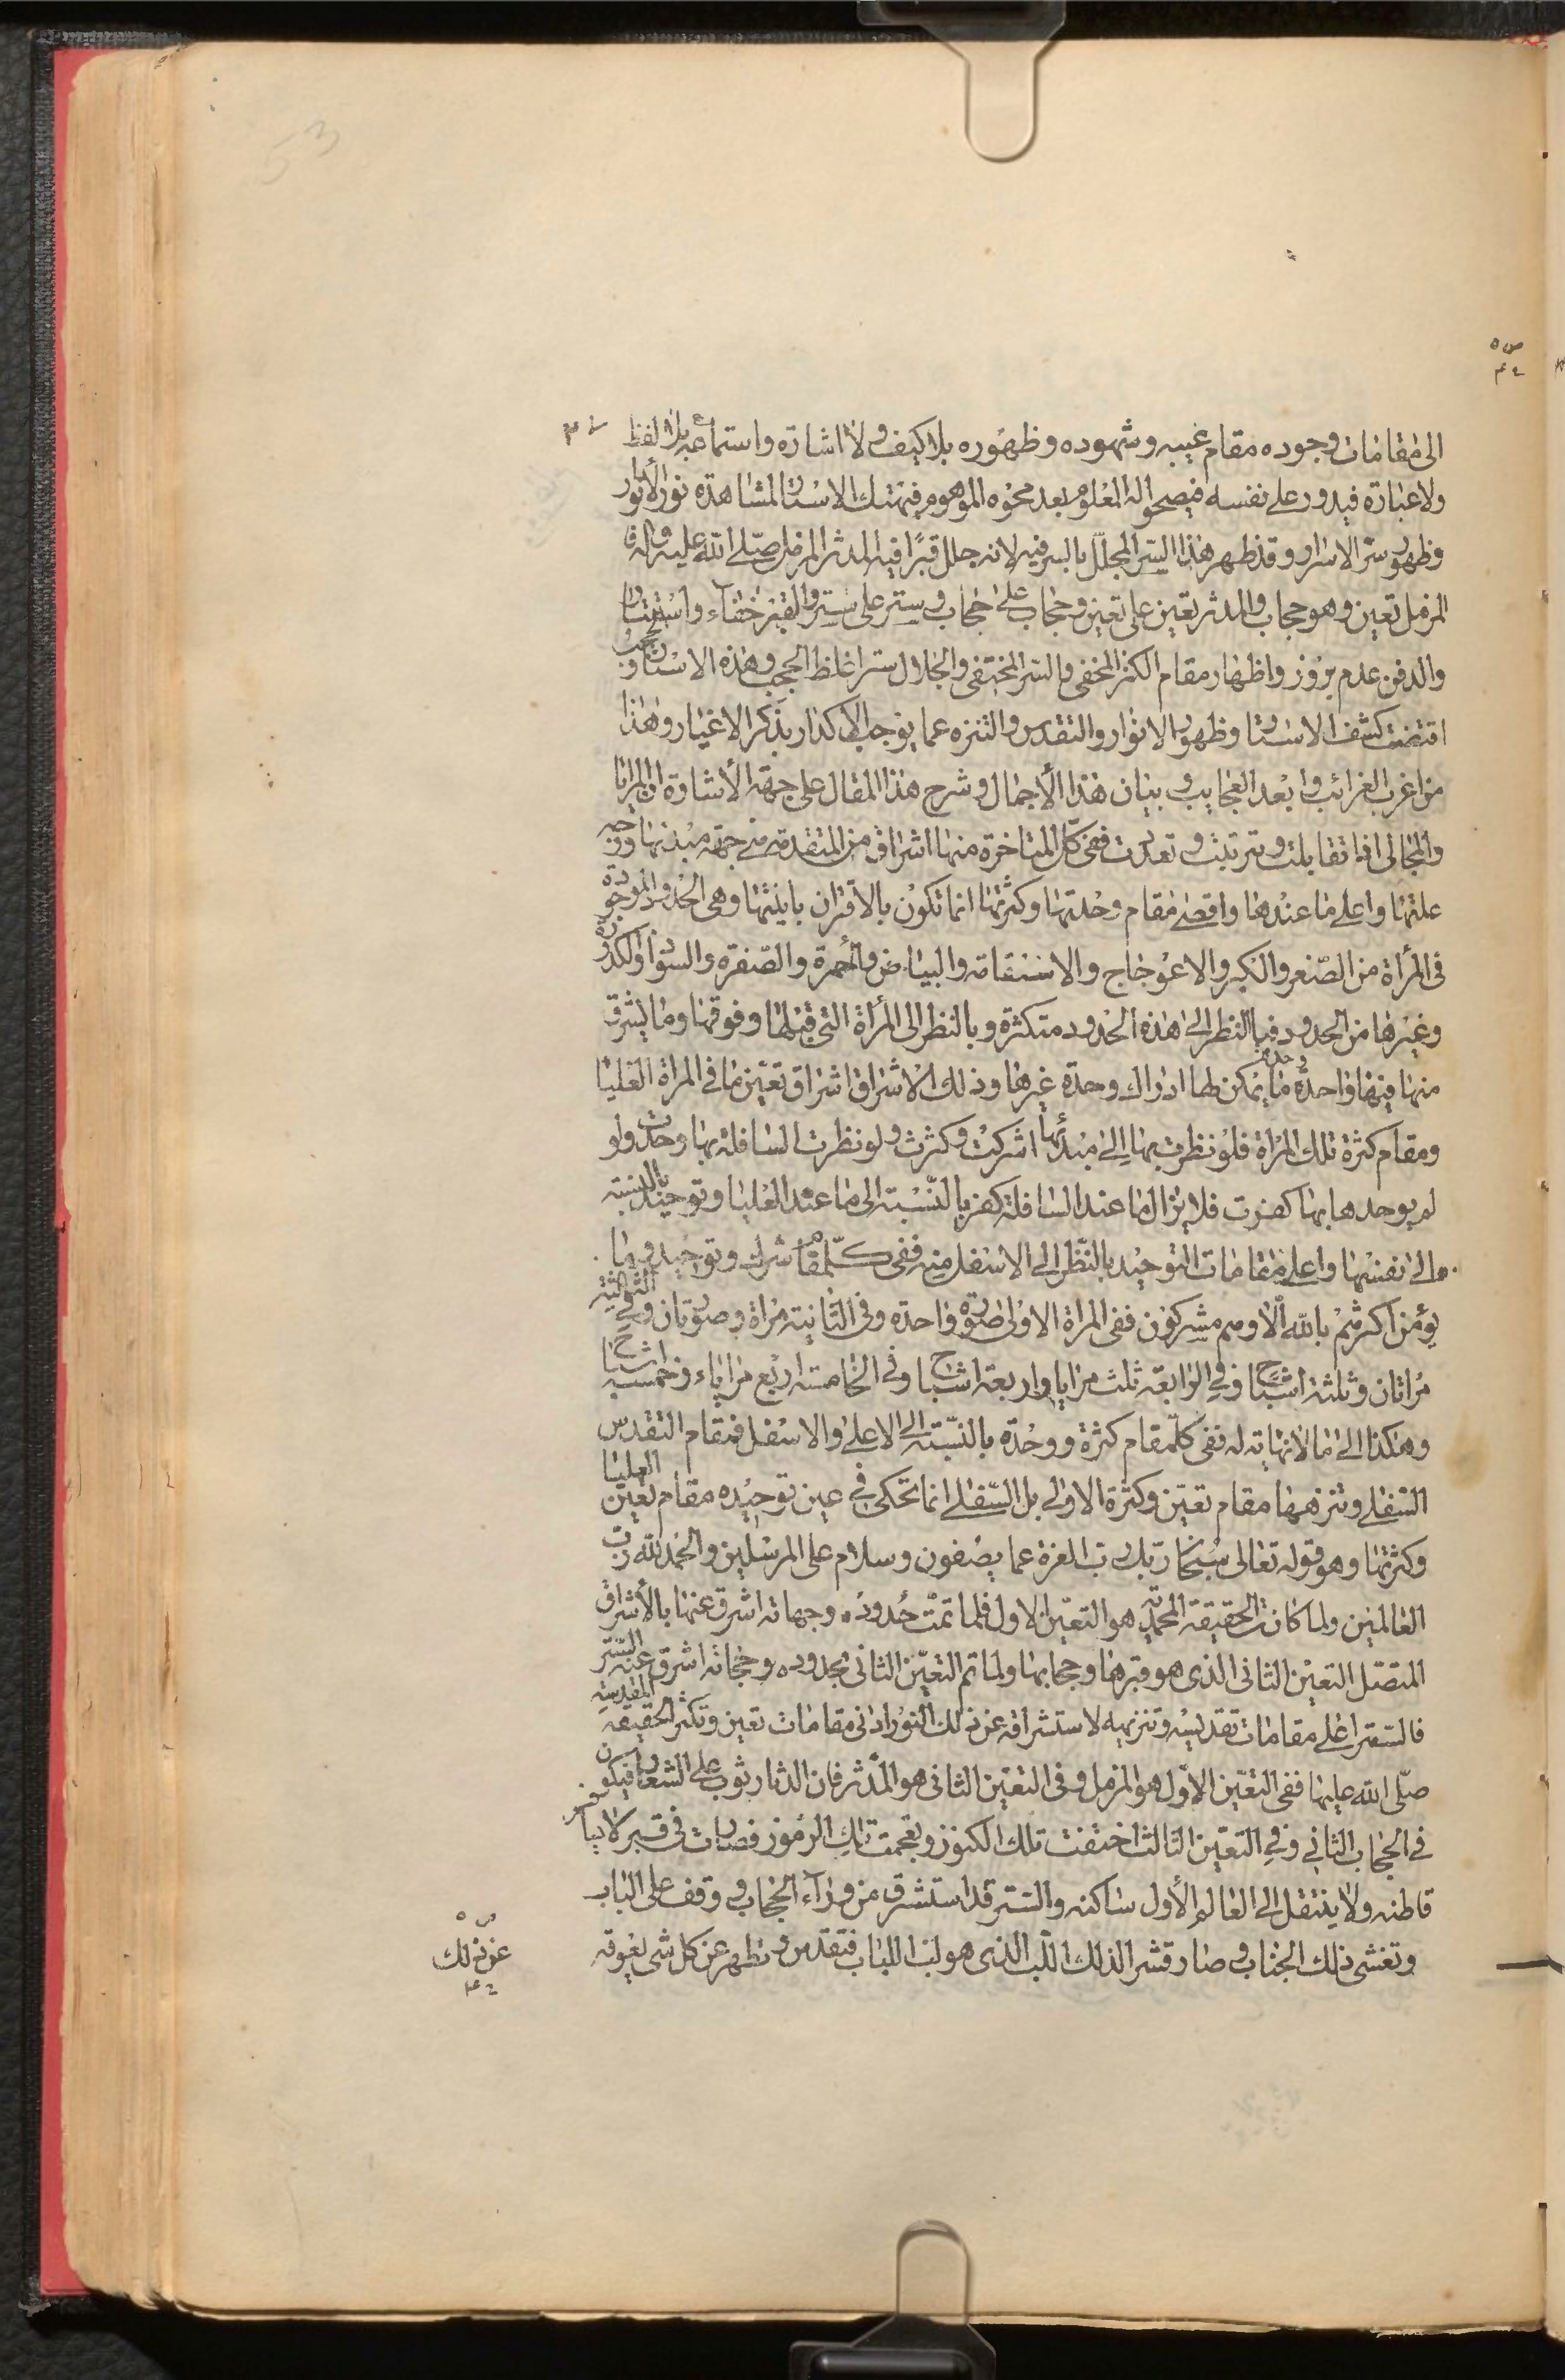 53
الى مقامات وجوده مقام غيبه وشهوده وظهوره بلا كيف ولا اشارة واستماعه بلا لفظ
ولا عبارة فيدور على نفسه فيصحو له المعلوم بعد محوه الموهوم فيهتك الاستار لمشاهدة نور الأنوار
وظهور سر الاسرار وقد ظهر هذا السر المجلل بالسر فيه لانه جلل قبرًا فيه المدثر المزمل صلى الله عليه وآله فان
المزمل تعين وهو حجاب والمدثر تعين على تعين وحجاب على حجاب وستر على ستر والقبر خفاء واستتار
والدفن عدم بروز واظهار مقام الكنز المخفى والسر المختفى والجلال ستر اغلظ الحجب وهذه الاستار والحجب
اقتضت كشف الاستار وظهور الانوار والتقدس والتنزه عما يوجب الأكدار بذكر الاغيار وهذا
من اغرب الغرائب وابعد العجايب وبيان هذا الأجمال وشرح هذا المقال على جهة الأشارة ان المرايا
والمجالى اذا تقابلت وترتبت وتعددت ففى كل المتاخرة منها اشراق من المتقدمة من جهة مبدئها ووجه
علتها واعلى ما عندها واقصى مقام وحدتها وكثرتها انما تكون بالاقتران باينيتها وهى الحدود الموجودة
فى المرأة من الصغر والكبر والاعوجاج والاستقامة والبياض والحمرة والصفرة والسواد والكدرة
وغيرها من الحدود فبالنظر الى هذه الحدود متكثرة وبالنظر الى المرأة التى قبلها وفوقها وما يشرق
منها فيها واحدة وحدة ما يمكن لها ادراك وحدة غيرها وذلك الاشراق اشراق تعين ما فى المراة العليا
ومقام كثرة تلك المراة فلو نظرت بها الى مبدئها اشركت وكثرت ولو نظرت السافلة بها وحدت ولو
لم يوحدها بها كفرت فلا يزال ما عند السافلة كفر بالنسبة الى ما عند العليا وتوحيد بالنسبة
الى نفسها واعلى مقامات التوحيد بالنظر الى الاسفل منه ففى كل مقام شرك وتوحيد وما
يؤمن اكثرهم بالله الا وهم مشركون ففى المراة الاولى صورة واحدة وفى الثانية مراة وصورتان وفى الثالثة
مراتان وثلثة اشباح وفى الرابعة ثلث مرايا واربعة اشباح وفى الخامسة اربع مراياء وخمسة اشباح
وهكذا الى ما لا نهاية له ففى كل مقام كثرة ووحدة بالنسبة الى الاعلى والاسفل فمقام التقدس
السفلى وتنزهها مقام تعين وكثرة الاولى بل السفلى انما تحكى فى عين توحيده مقام تعين العليا
وكثرتها وهو قوله تعالى سبحان ربك رب العزة عما يصفون وسلام على المرسلين والحمد لله رب
العالمين ولما كانت الحقيقة المحمدية هو التعين الاول فلما تمت حدوده وجهاته اشرق عنها بالأشراق
المتصل التعين الثانى الذى هو قبرها وحجابها ولما تم التعين الثانى بحدوده وحجاته اشرق عنه الستر
فالستر اعلى مقامات تقديسه وتنزيهه لاستشراقه عن ذلك النور ادنى مقامات تعين وتكثر الحقيقة المقدسة
صلى الله عليها ففى التعين الاول هو المزمل وفى التعين الثانى هو المدثر فان الدثار ثوب على الشعار فيكون
فى الحجاب الثانى وفى التعين الثالث اختفت تلك الكنوز وتعجمت تلك الرموز فصارت فى قبر لا يسافر
قاطنه ولا ينتقل الى العالم الأول ساكنه والستر قد استشرق من وراء الحجاب ووقف على الباب
وتغشى ذلك الجناب وصار قشر الذلك اللب الذى هو لب اللباب فتقدس وتطهر عن كل شى يغوته
عن ذلك